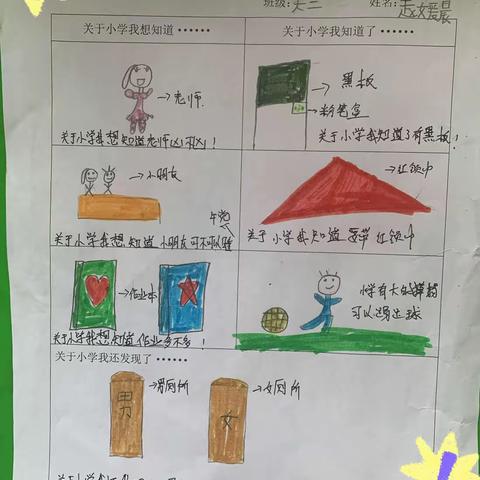 班级：大二 姓名：赵媛晨
关于小学我想知道······
关于小学我知道了······
老师
关于小学我想知道老师凶不凶！
黑板
粉笔盒
关于小学我知道了有黑板！
小朋友
午觉
关于小学我想知道小朋友可不可以睡
红领巾
关于小学我知道要带红领巾
作业本
关于小学我想知道作业多不多！
小学有大的操场
可以踢足球
关于小学我还发现了······
男厕所
男
女厕所
女